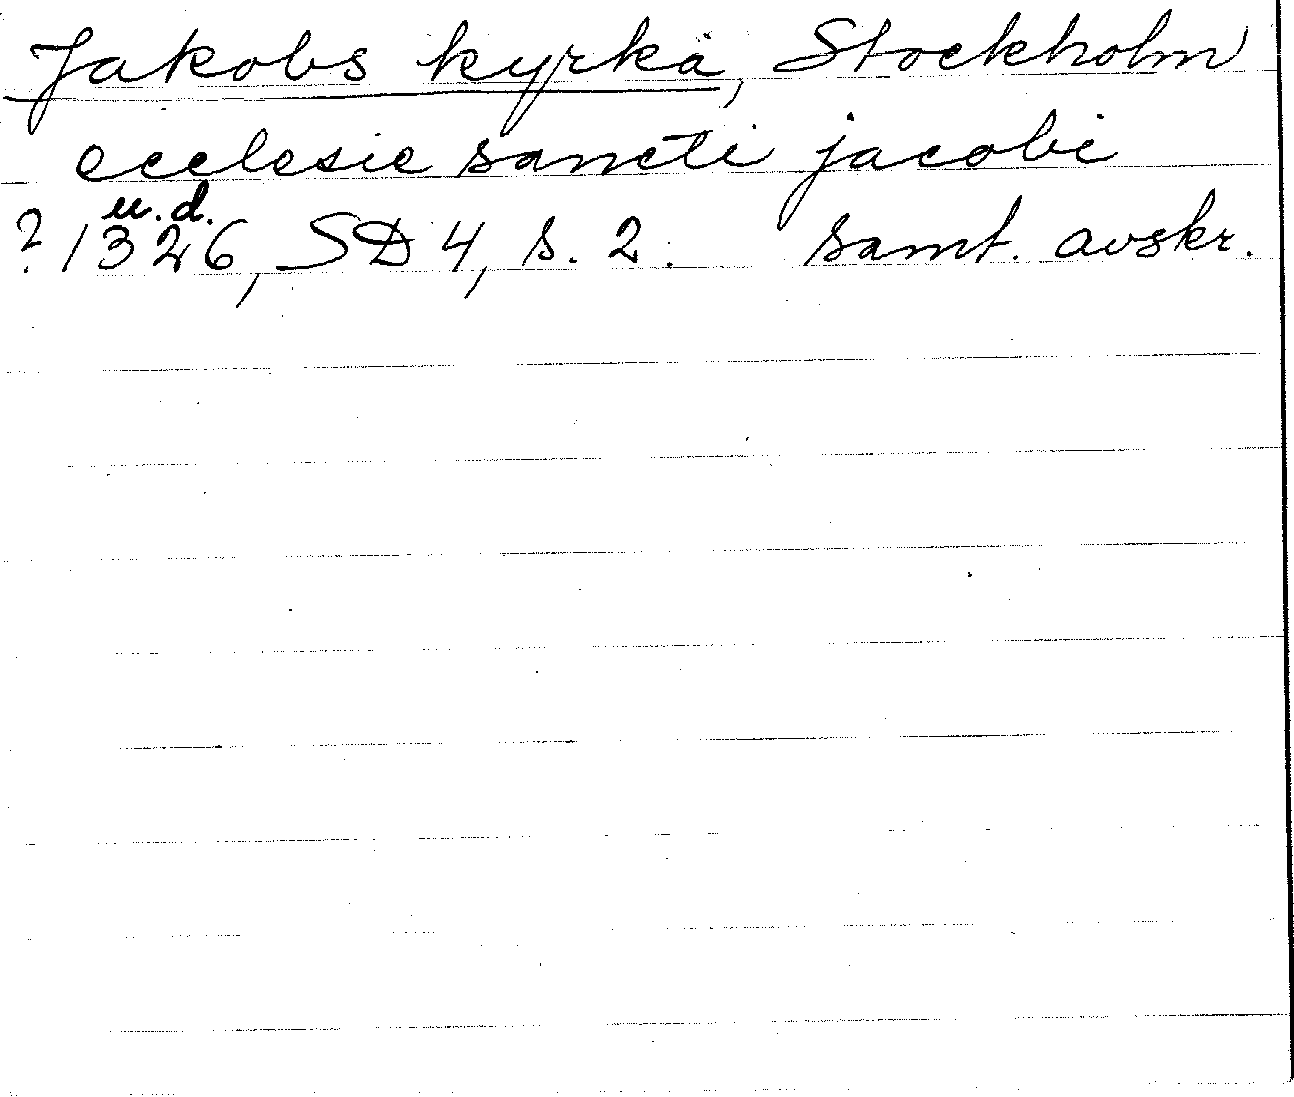 Jakobs kyrka, Stockholm
ecclesie sancti jacobi
u.d.
? 1326, SD 4, s. 2. samt. avskr.